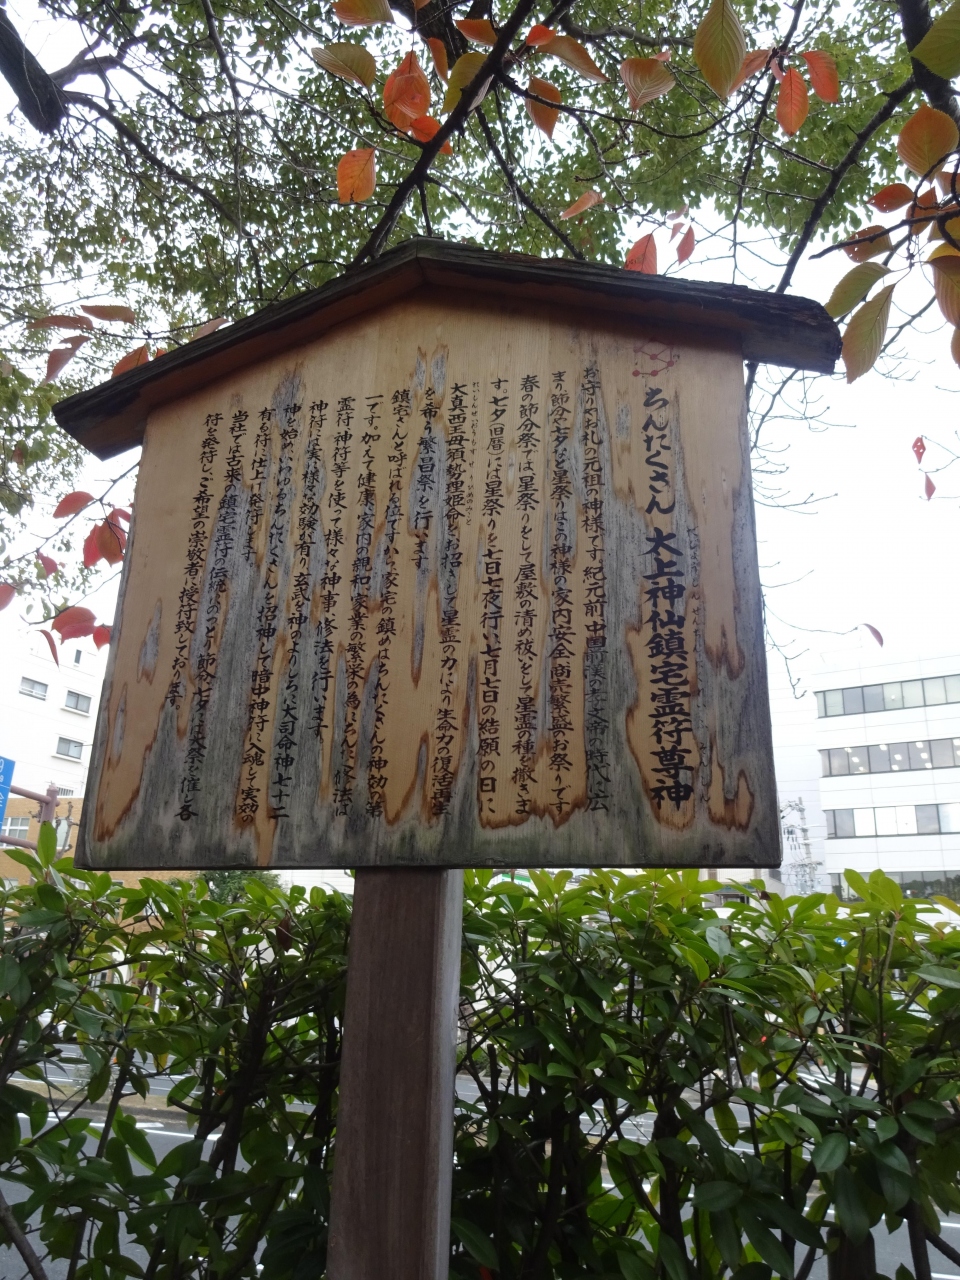 ちんたくさん 太上神仙鎮宅霊符尊神
お守りやお札の元祖の神様です。紀元前中国前漢の孝文帝の時代に広
まり節分や七夕など星祭りはこの神様の家内安全、商売繁盛のお祭りです
春の節分祭では星祭りをして屋敷の清め祓いをして星霊の種を撒きま
す。七夕(旧暦)には星祭りを七日七夜行い、七月七日の結願の日に
大真西王母須勢理姫命をお招きして星霊の力により生命力の復活再生
を希う繁昌祭を行います
鎮宅さんと呼ばれる位ですから家宅の鎮めはちんたくさんの神効の第
一です。加えて健康、家内の親和、家業の繁栄の為にちんたく修法は
霊符、神符等を使って様々な神事、修法を行います
神符には実に様々な効験が有り、玄武を神のよりしろに大司命神七十二
神を始め、いわゆるちんたくさんを招神して暗中神符に入魂して実効の
有る符に仕上げ発符します。
当社では古来の鎮宅霊符の伝統にのっとり節分、七夕には大祭を催し各
符を発符し、ご希望の崇敬者に授符致しております。